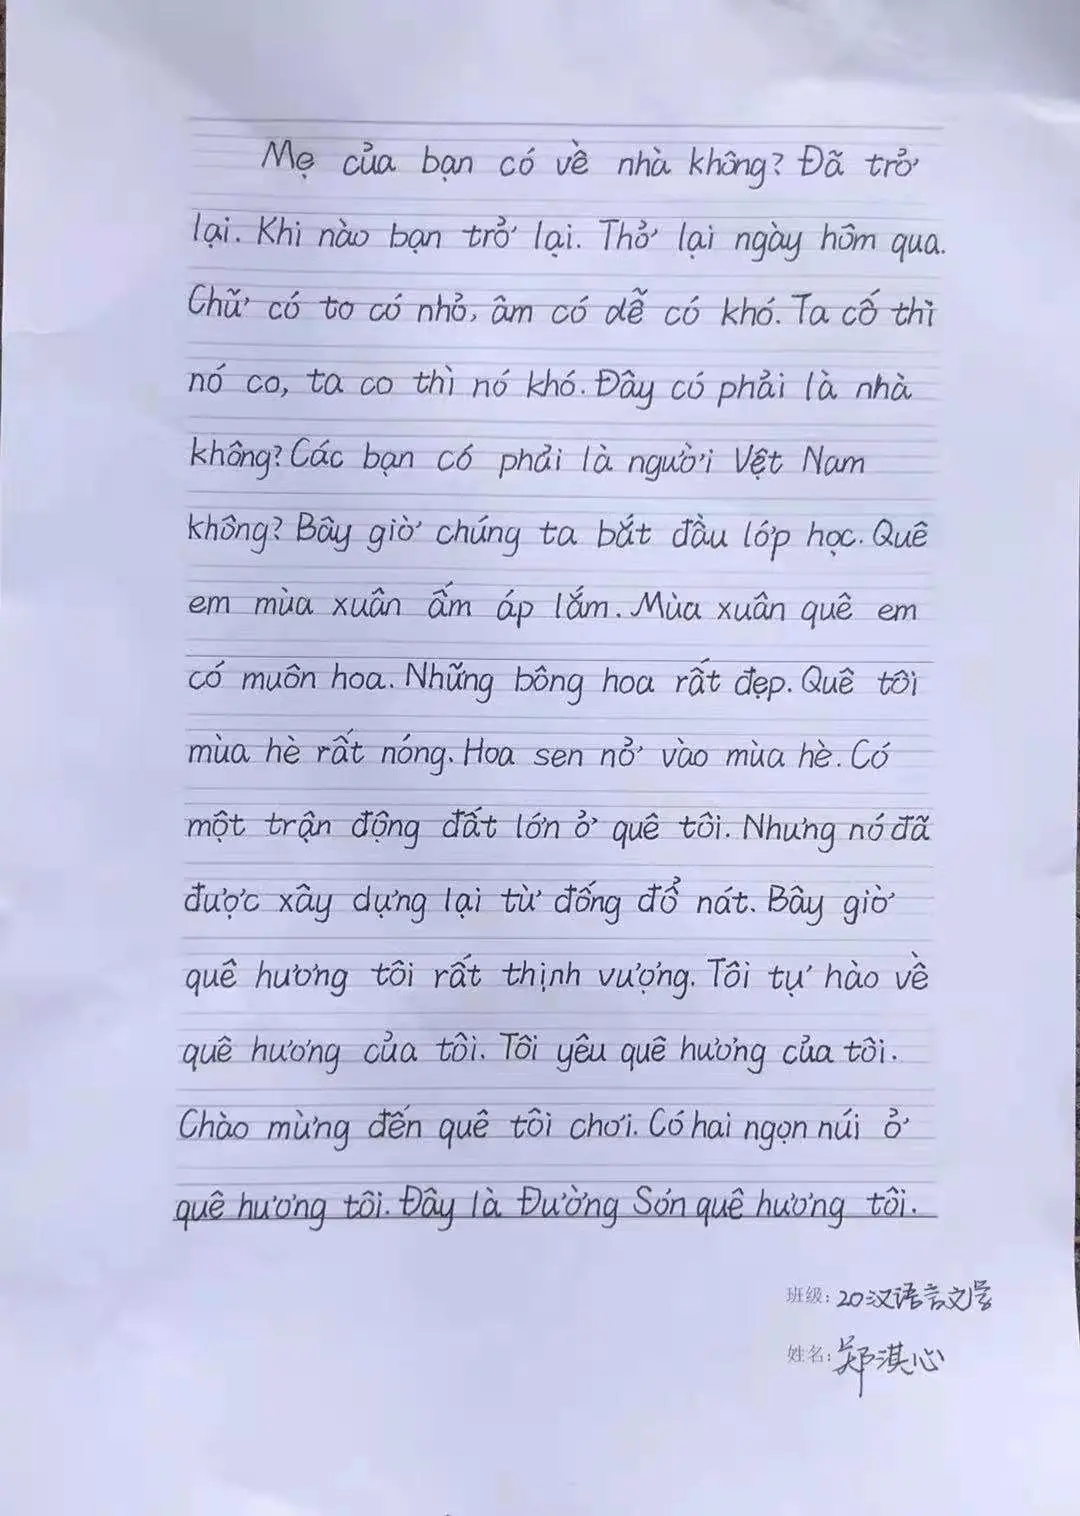 Mẹ của bạn có về nhà không? Đã trở
lại. Khi nào bạn trở lại. Thở lại ngày hôm qua.
Chữ có to có nhỏ, âm có dễ có khó. Ta cố thì
nó co, ta co thì nó khó. Đây có phải là nhà
không? Các bạn có phải là người Vệt Nam
không? Bây giờ chúng ta bắt đầu lớp học. Quê
em mùa xuân ấm áp lắm. Mùa xuân quê em
có muôn hoa. Những bông hoa rất đẹp. Quê tôi
mùa hè rất nóng. Hoa sen nở vào mùa hè. Có
một trận động đất lớn ở quê tôi. Nhưng nó đã
được xây dựng lại từ đống đổ nát. Bây giờ
quê hương tôi rất thịnh vượng. Tôi tự hào về
quê hương của tôi. Tôi yêu quê hương của tôi.
Chào mừng đến quê tôi chơi. Có hai ngọn núi ở
quê hương tôi. Đây là Đường Són quê hương tôi.
班级: 20汉语言文学
姓名: 郑淇心